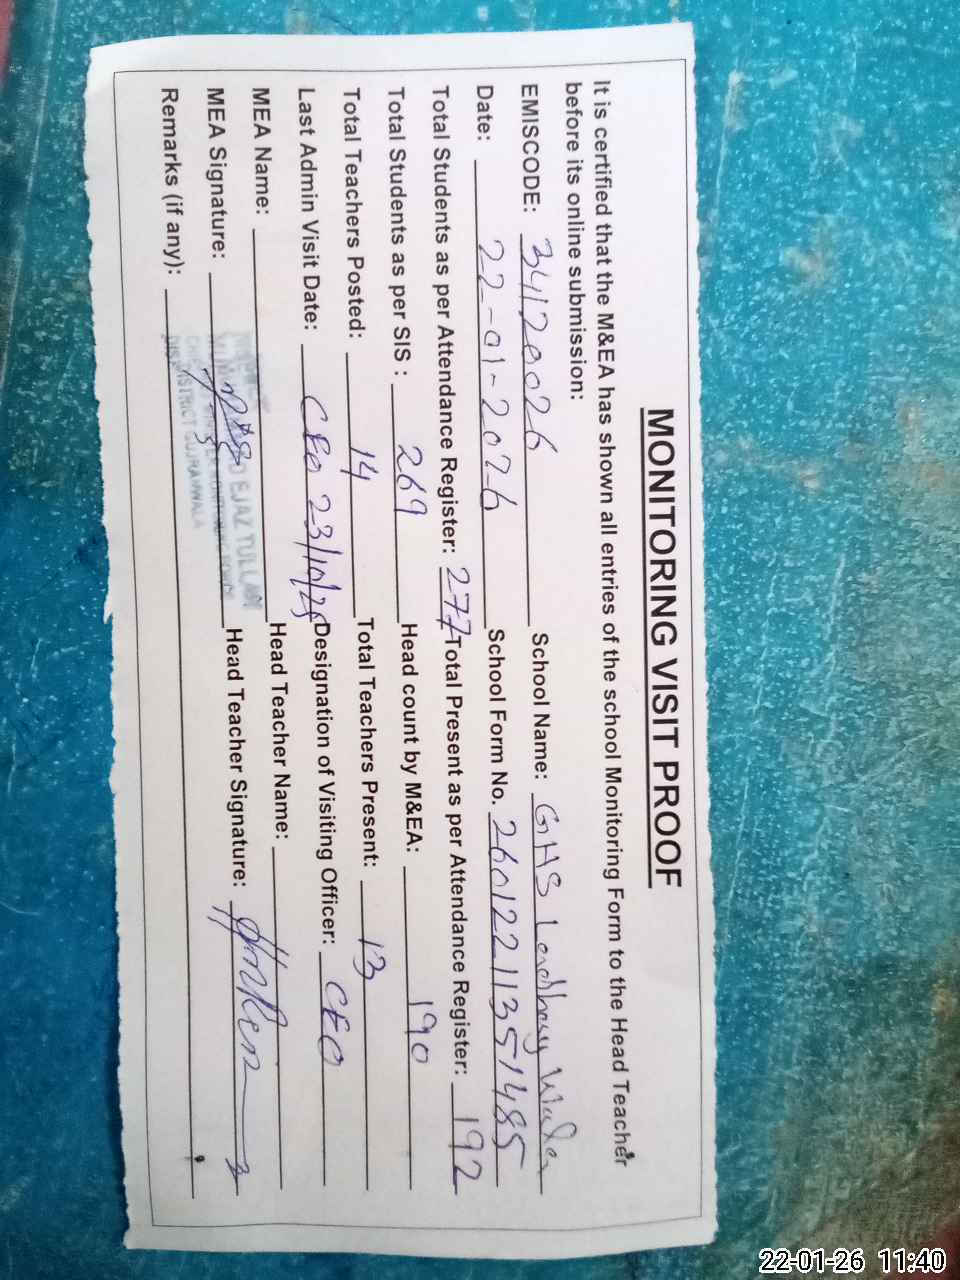 MONITORING VISIT PROOF
It is certified that the M&EA has shown all entries of the school Monitoring Form to the Head Teacher
before its online submission:
EMISCODE: 34120026 School Name: GHS
Date: 22-01-2026 School Form No. 26012211351485
Total Students as per Attendance Register: 277 Total Present as per Attendance Register: 192
Total Students as per SIS : 269 Head count by M&EA: 190
Total Teachers Posted: 14 Total Teachers Present: 13
Last Admin Visit Date: CEO 23/10/25 Designation of Visiting Officer: CEO
MEA Name: Head Teacher Name:
MEA Signature: Head Teacher Signature:
Remarks (if any):
EJAZ TULLAH
DISTRICT GUJRANWALA
22-01-26 11:40